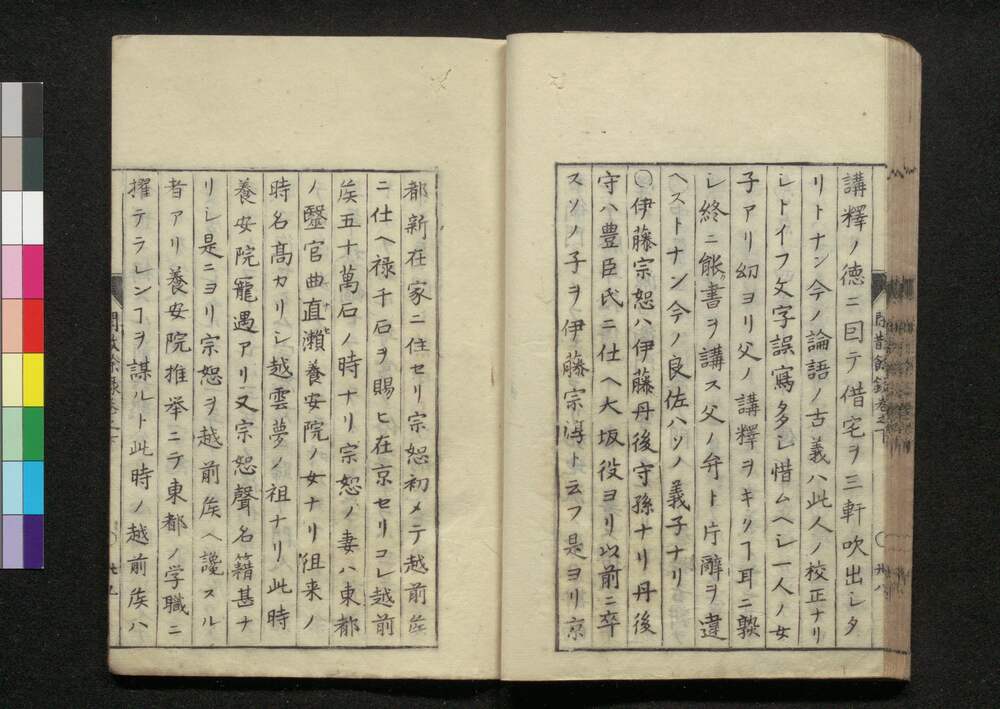 講釋ノ徳ニ回テ借宅ヲ三軒吹出シタ
リトナン今ノ論語ノ古義ハ此人ノ校正ナリ
シトイフ文字誤寫多シ惜ムヘシ一人ノ女
子アリ幼ヨリ父ノ講釋ヲキクヿ耳ニ熟
シ終ニ能書ヲ講ス父ノ弁ト片辭ヲ違
ヘストナン今ノ良佐ハソノ義子ナリ
〇伊藤宗恕ハ伊藤丹後守孫ナリ丹後
守ハ豊臣氏ニ仕ヘ大坂役ヨリ以前ニ卒
スソノ子ヲ伊藤宗淳ト云フ是ヨリ京
都新在家ニ住セリ宗恕初メテ越前矦
ニ仕ヘ禄千石ヲ賜ヒ在京セリコレ越前
矦五十萬石ノ時ナリ宗恕ノ妻ハ東都
ノ毉官曲直瀬養安院ノ女ナリ徂来ノ
時名髙カリシ越雲夢ノ祖ナリ此時
養安院寵遇アリ又宗恕聲名籍甚ナ
リシ是ニヨリ宗恕ヲ越前矦ヘ讒スル
者アリ養安院推举ニテ東都ノ学職ニ
擢テラレンヿヲ謀ルト此時ノ越前矦ハ